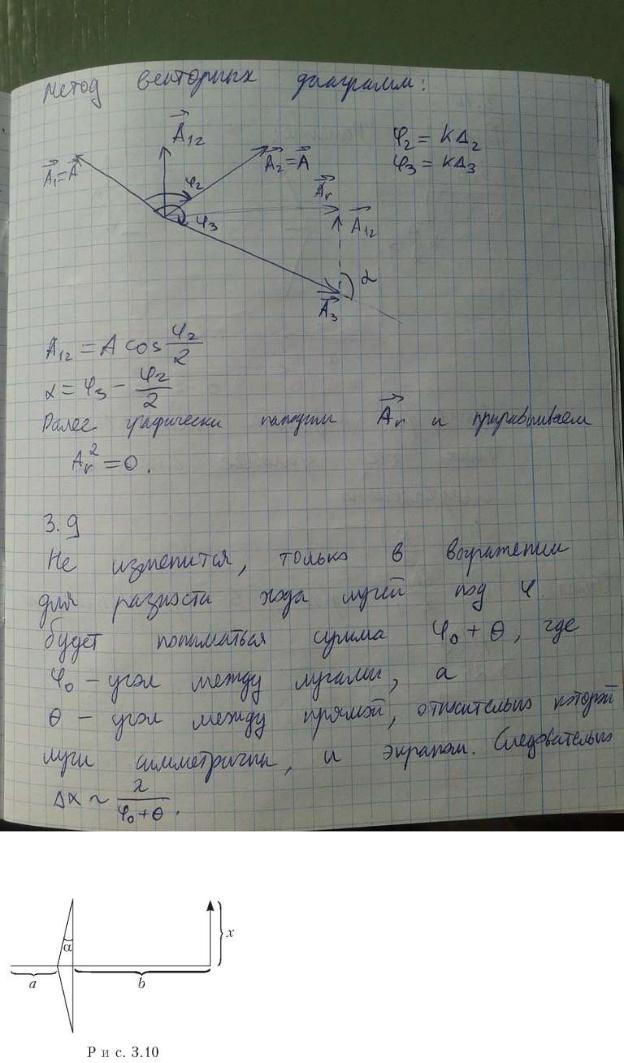 Метод векторных диаграмм:
A₁₂
A₁=A
φ₂
A₂=A
φ₂ = kΔ₂
φ₃ = kΔ₃
Aᵣ
φ₃
A₁₂
α
A₃
A₁₂ = A cos φ₂/2
α = φ₃ − φ₂/2
Далее графически находим Aᵣ и приравниваем
Aᵣ² = 0.
3.9
Не изменится, только в выражении
для разности хода лучей под φ
будет пониматься сумма φ₀ + θ, где
φ₀ – угол между лучами, а
θ – угол между прямой, относительно которой
лучи симметричны, и экраном. Следовательно
Δx ~ λ/(φ₀+θ).
α
x
a
b
Рис. 3.10